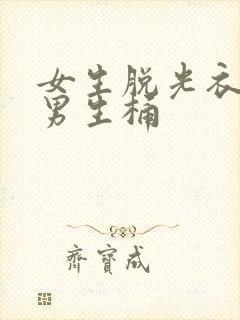 女生脱光衣
男生桶
齊寶成